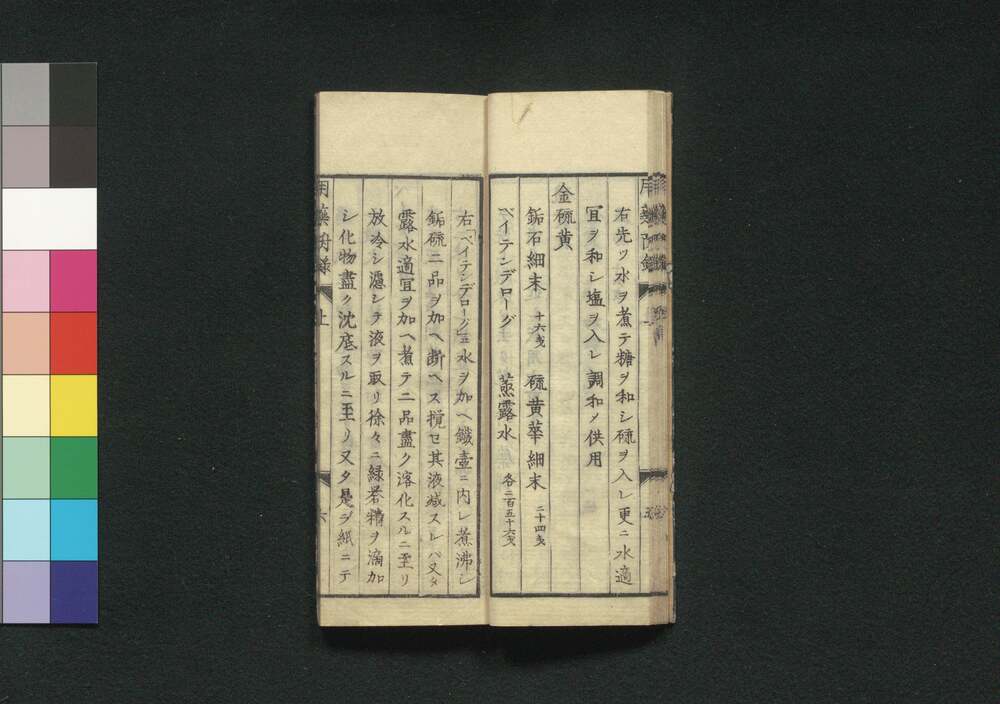 右先ツ水ヲ煮テ糖ヲ和シ硫ヲ入レ更ニ水適
宜ヲ和シ塩ヲ入レ調和メ供用
金硫黄
鉐石細末 十六戔 硫黄華細末 二十四戔
ベイテンデローグ 蒸露水 各二百五十六戔
右「ベイテンデローグ」ニ水ヲ加ヘ鐵壺ニ内レ煮沸シ
鉐硫二品ヲ加ヘ断ヘス攪セ其液减スレハ又タ
露水適宜ヲ加ヘ煮テ二品盡ク溶化スルニ至リ
放冷シ濾シテ液ヲ取リ徐々ニ緑礬精ヲ滴加
シ化物盡ク沈底スルニ至リ又タ是ヲ紙ニテ
上
六